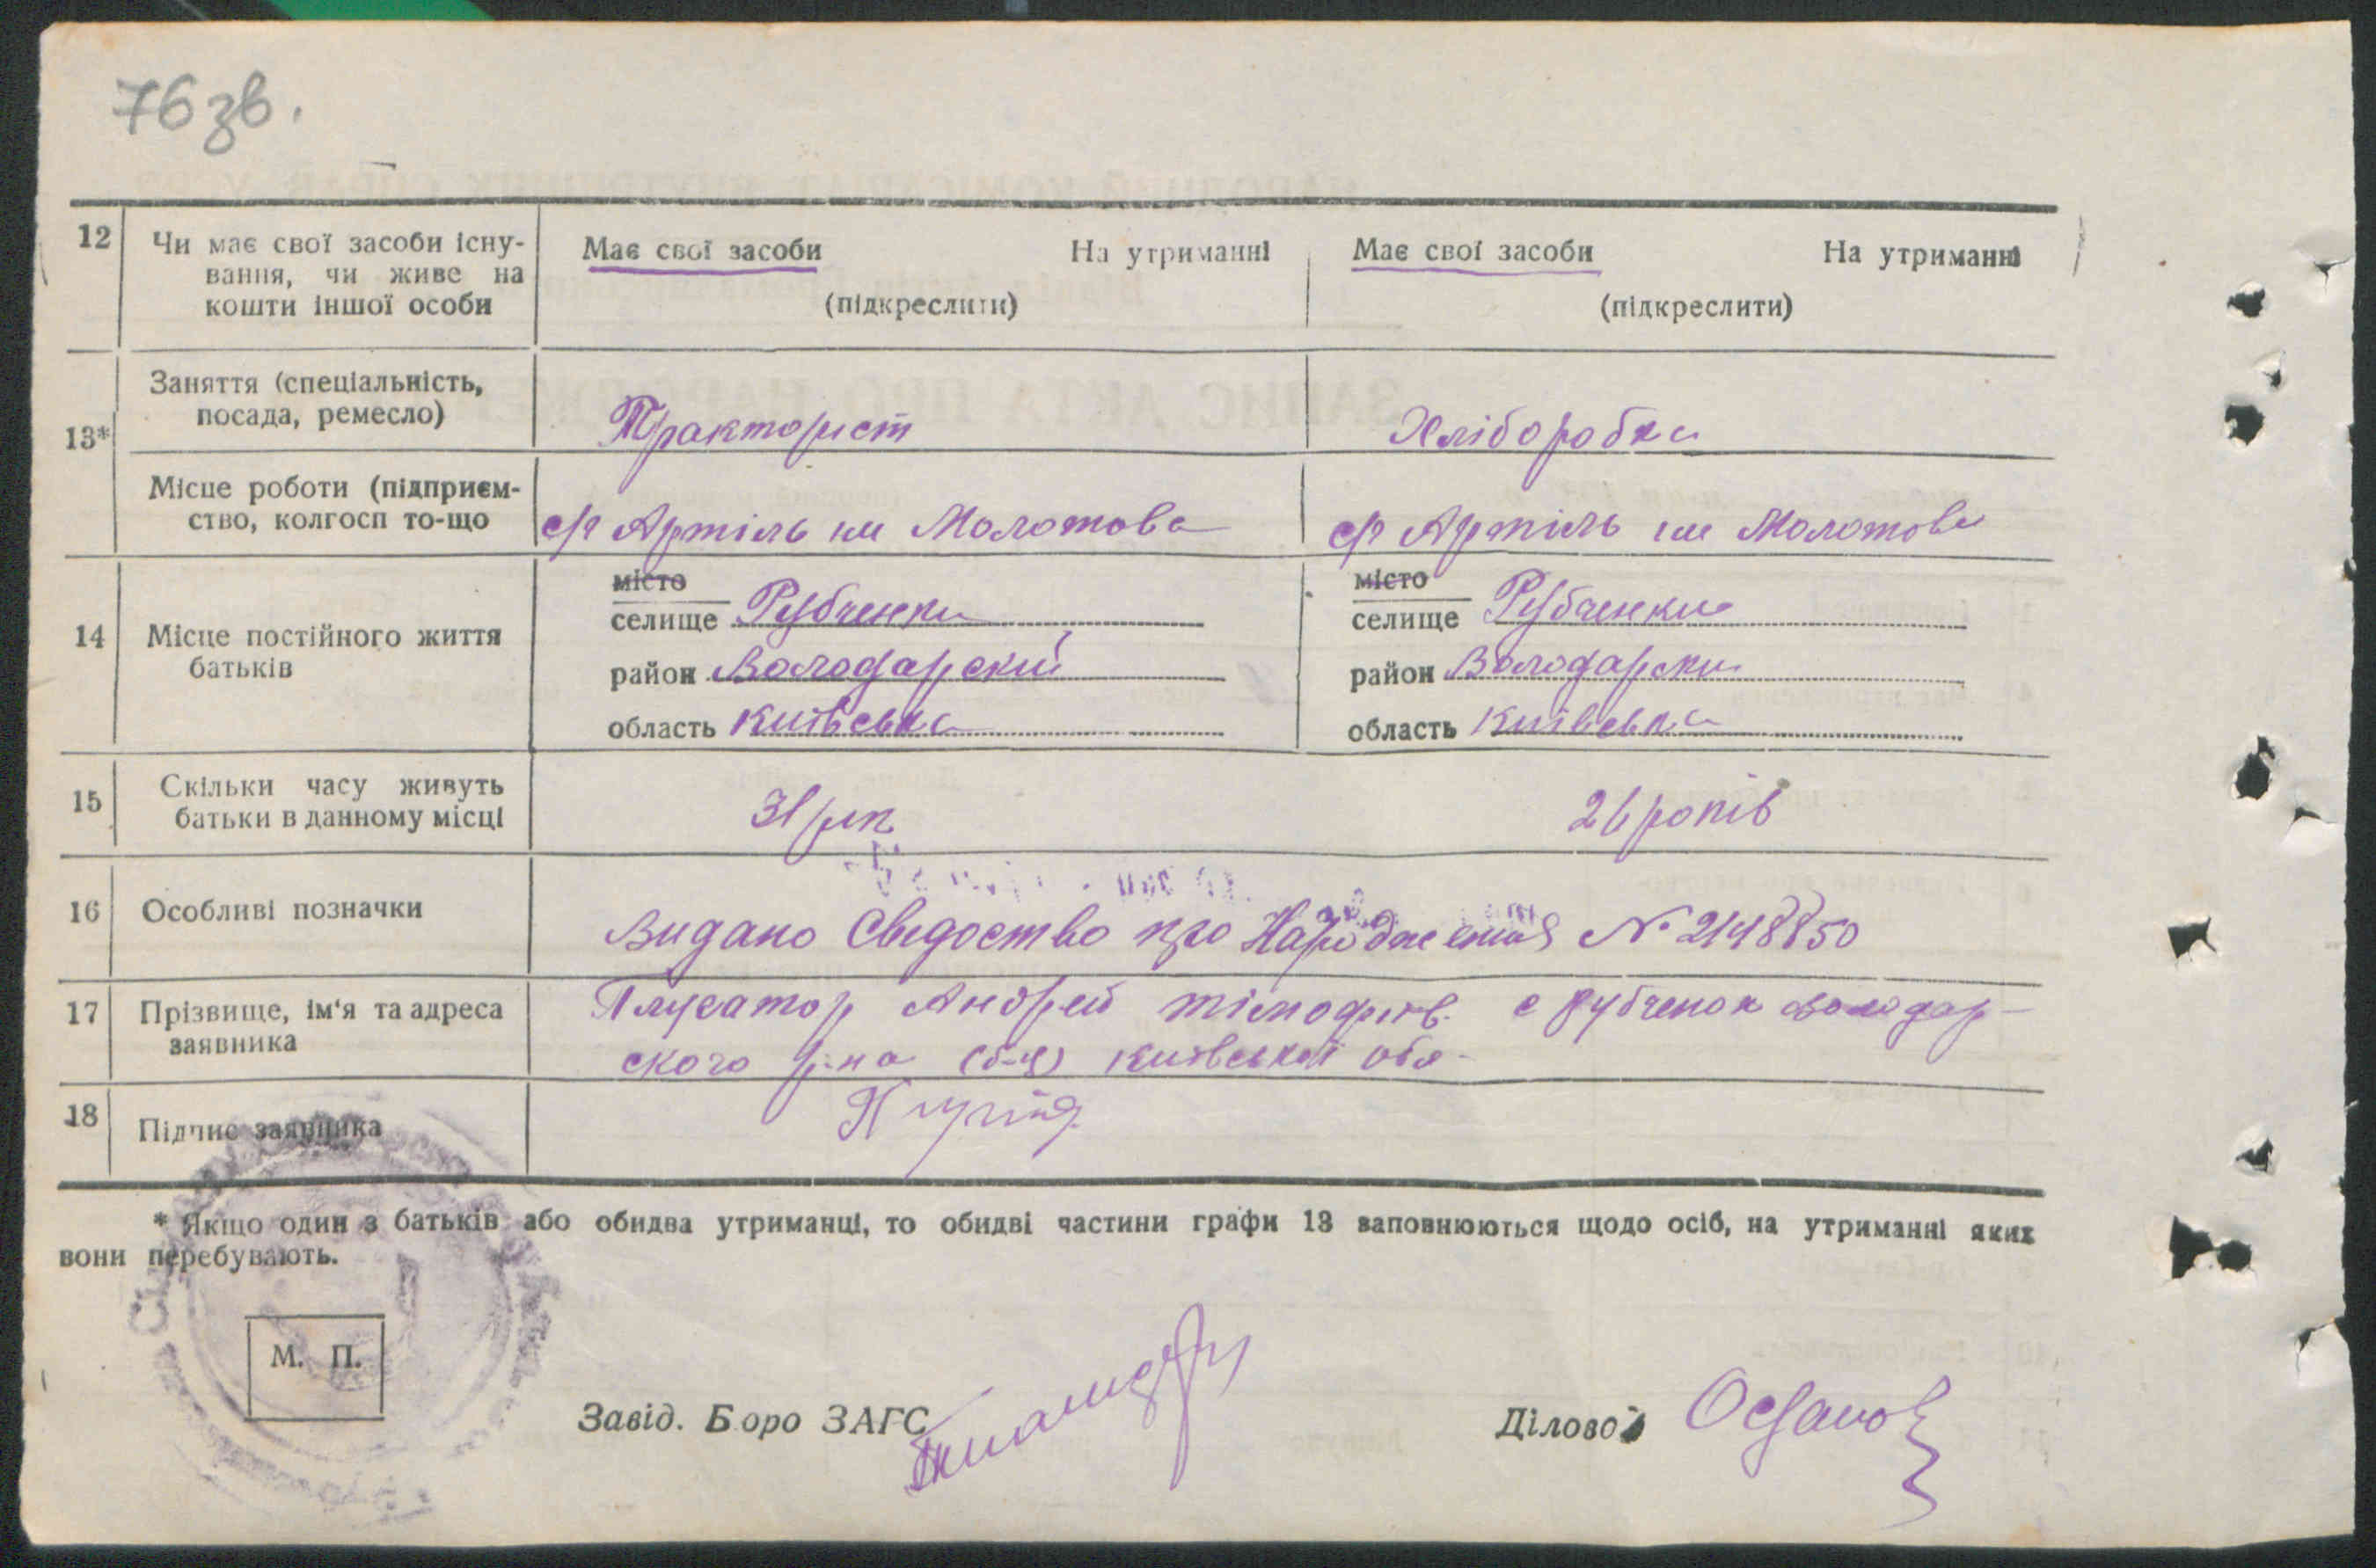 76 зв.
12 Чи має свої засоби існу- Має свої засоби На утриманні Має свої засоби На утриманні
вання, чи живе на
кошти іншої особи (підкреслити) (підкреслити)
Заняття (спеціальність,
13* посада, ремесло) Тракторист Хліборобка
Місце роботи (підприєм-
ство, колгосп то-що с/г Артіль им Молотова с/г Артіль им Молотова
місто місто
селище Рубченки селище Рубченки
14 Місце постійного життя
батьків район Володарский район Володарски
область Київська область Київська
15 Скільки часу живуть
батьки в данному місці 31 рік 26 років
16 Особливі позначки
Видано Сведоство про Народження № 2148850
17 Прізвище, ім'я та адреса Андрей Тімофіїв. с Рубченок Володар-
заявника ского р-на (б-ц) Київської обл.
18 Підпис заявника
* Якщо один з батьків або обидва утриманці, то обидві частини графи 13 заповнюються щодо осіб, на утриманні яких
вони перебувають.
М. П.
Завід. Бюро ЗАГС Діловод